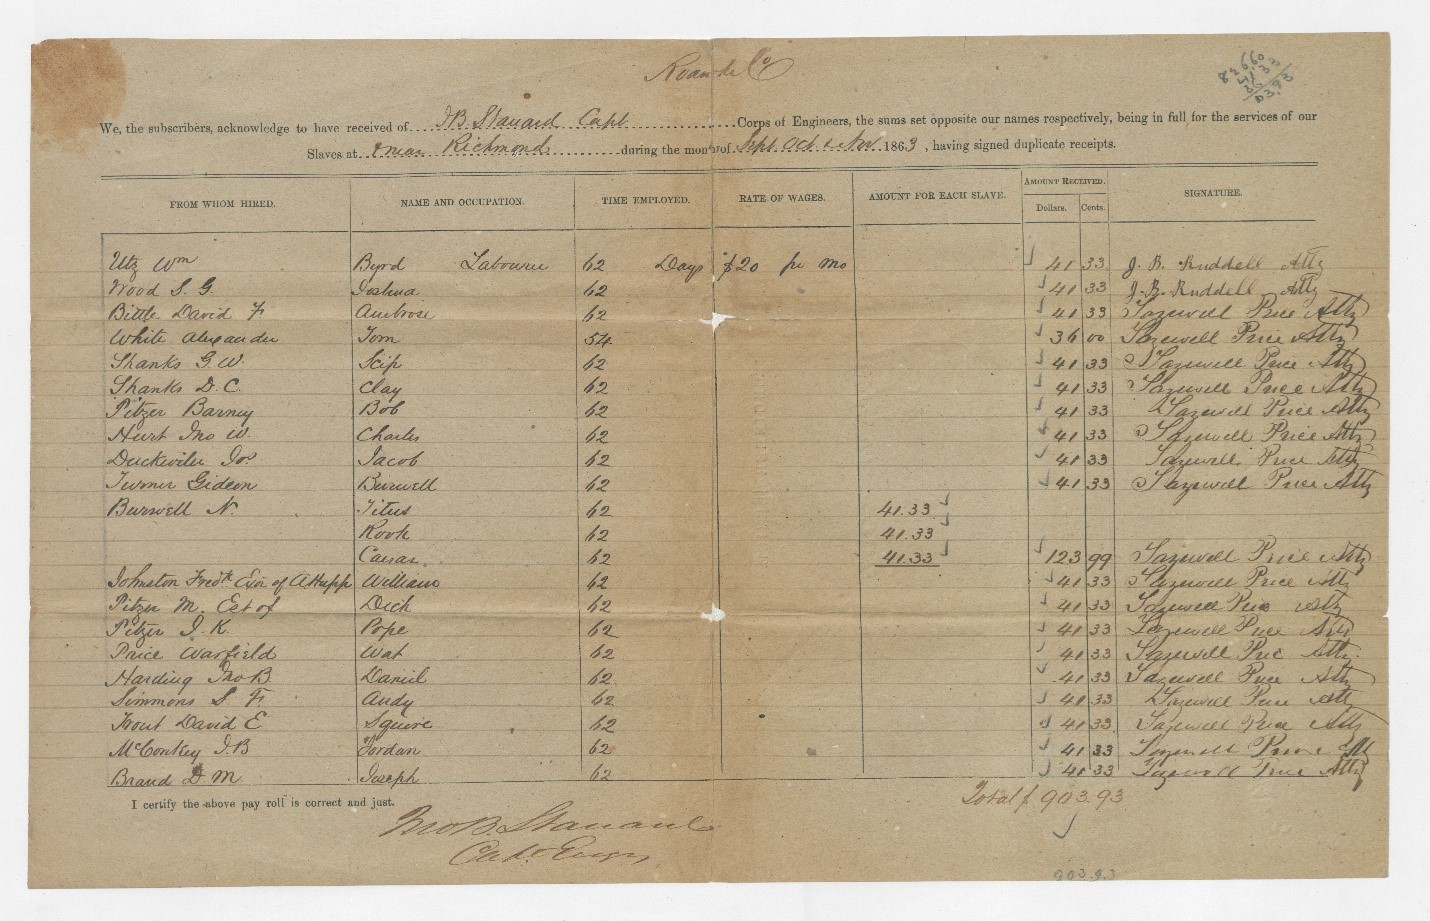 Roanoke Co
We, the subscribers, acknowledge to have received of J B. Stanard Capt Corps of Engineers, the sums set opposite our names respectively, being in full for the services of our
Slaves at & near Richmond during the month of Sept. Oct & Nov 1863, having signed duplicate receipts.
FROM WHOM HIRED. NAME AND OCCUPATION. TIME EMPLOYED. RATE OF WAGES. AMOUNT FOR EACH SLAVE. AMOUNT RECEIVED. SIGNATURE.
Dollars. Cents.
Utz Wm Byrd Labourer 62 Days $20 pr mo 41 33 J. R. Ruddell Atty
Wood S. G. Joshua 62 41 33 J. R. Ruddell Atty
Bittle David F Ambrose 62 41 33 Tazewell Price Atty
White Alexander Tom 54 36 00 Tazewell Price Atty
Shanks G. W. Scip 62 41 33 Tazewell Price Atty
Shanks D. C. Clay 62 41 33 Tazewell Price Atty
Pitzer Barney Bob 62 41 33 Tazewell Price Atty
Hurt Jno W. Charles 62 41 33 Tazewell Price Atty
Duckwiler Jos Jacob 62 41 33 Tazewell Price Atty
Turner Gideon Burwell 62 41 33 Tazewell Price Atty
Burwell N. Titus 62 41.33
Rook 62 41.33
Caesar 62 41.33 123 99 Tazewell Price Atty
Johnston Fredk Exor of A Hupp William 62 41 33 Tazewell Price Atty
Pitzer M. Est of Dick 62 41 33 Tazewell Price Atty
Pitzer J. K. Pope 62 41 33 Tazewell Price Atty
Price Warfield Wat 62 41 33 Tazewell Price Atty.
Harding Jno B. Daniel 62 41 33 Tazewell Price Atty
Simmons S F. Andy 62 41 33 Tazewell Price Atty
Trout David E Squire 62 41 33 Tazewell Price Atty
McConkey J. B Jordan 62 41 33 Tazewell Price Atty
Brand D M Joseph 62 41 33 Tazewell Price Atty
I certify the above pay roll is correct and just. Total $ 903.93
Jno B. Stanard
Capt Engrs
903.93